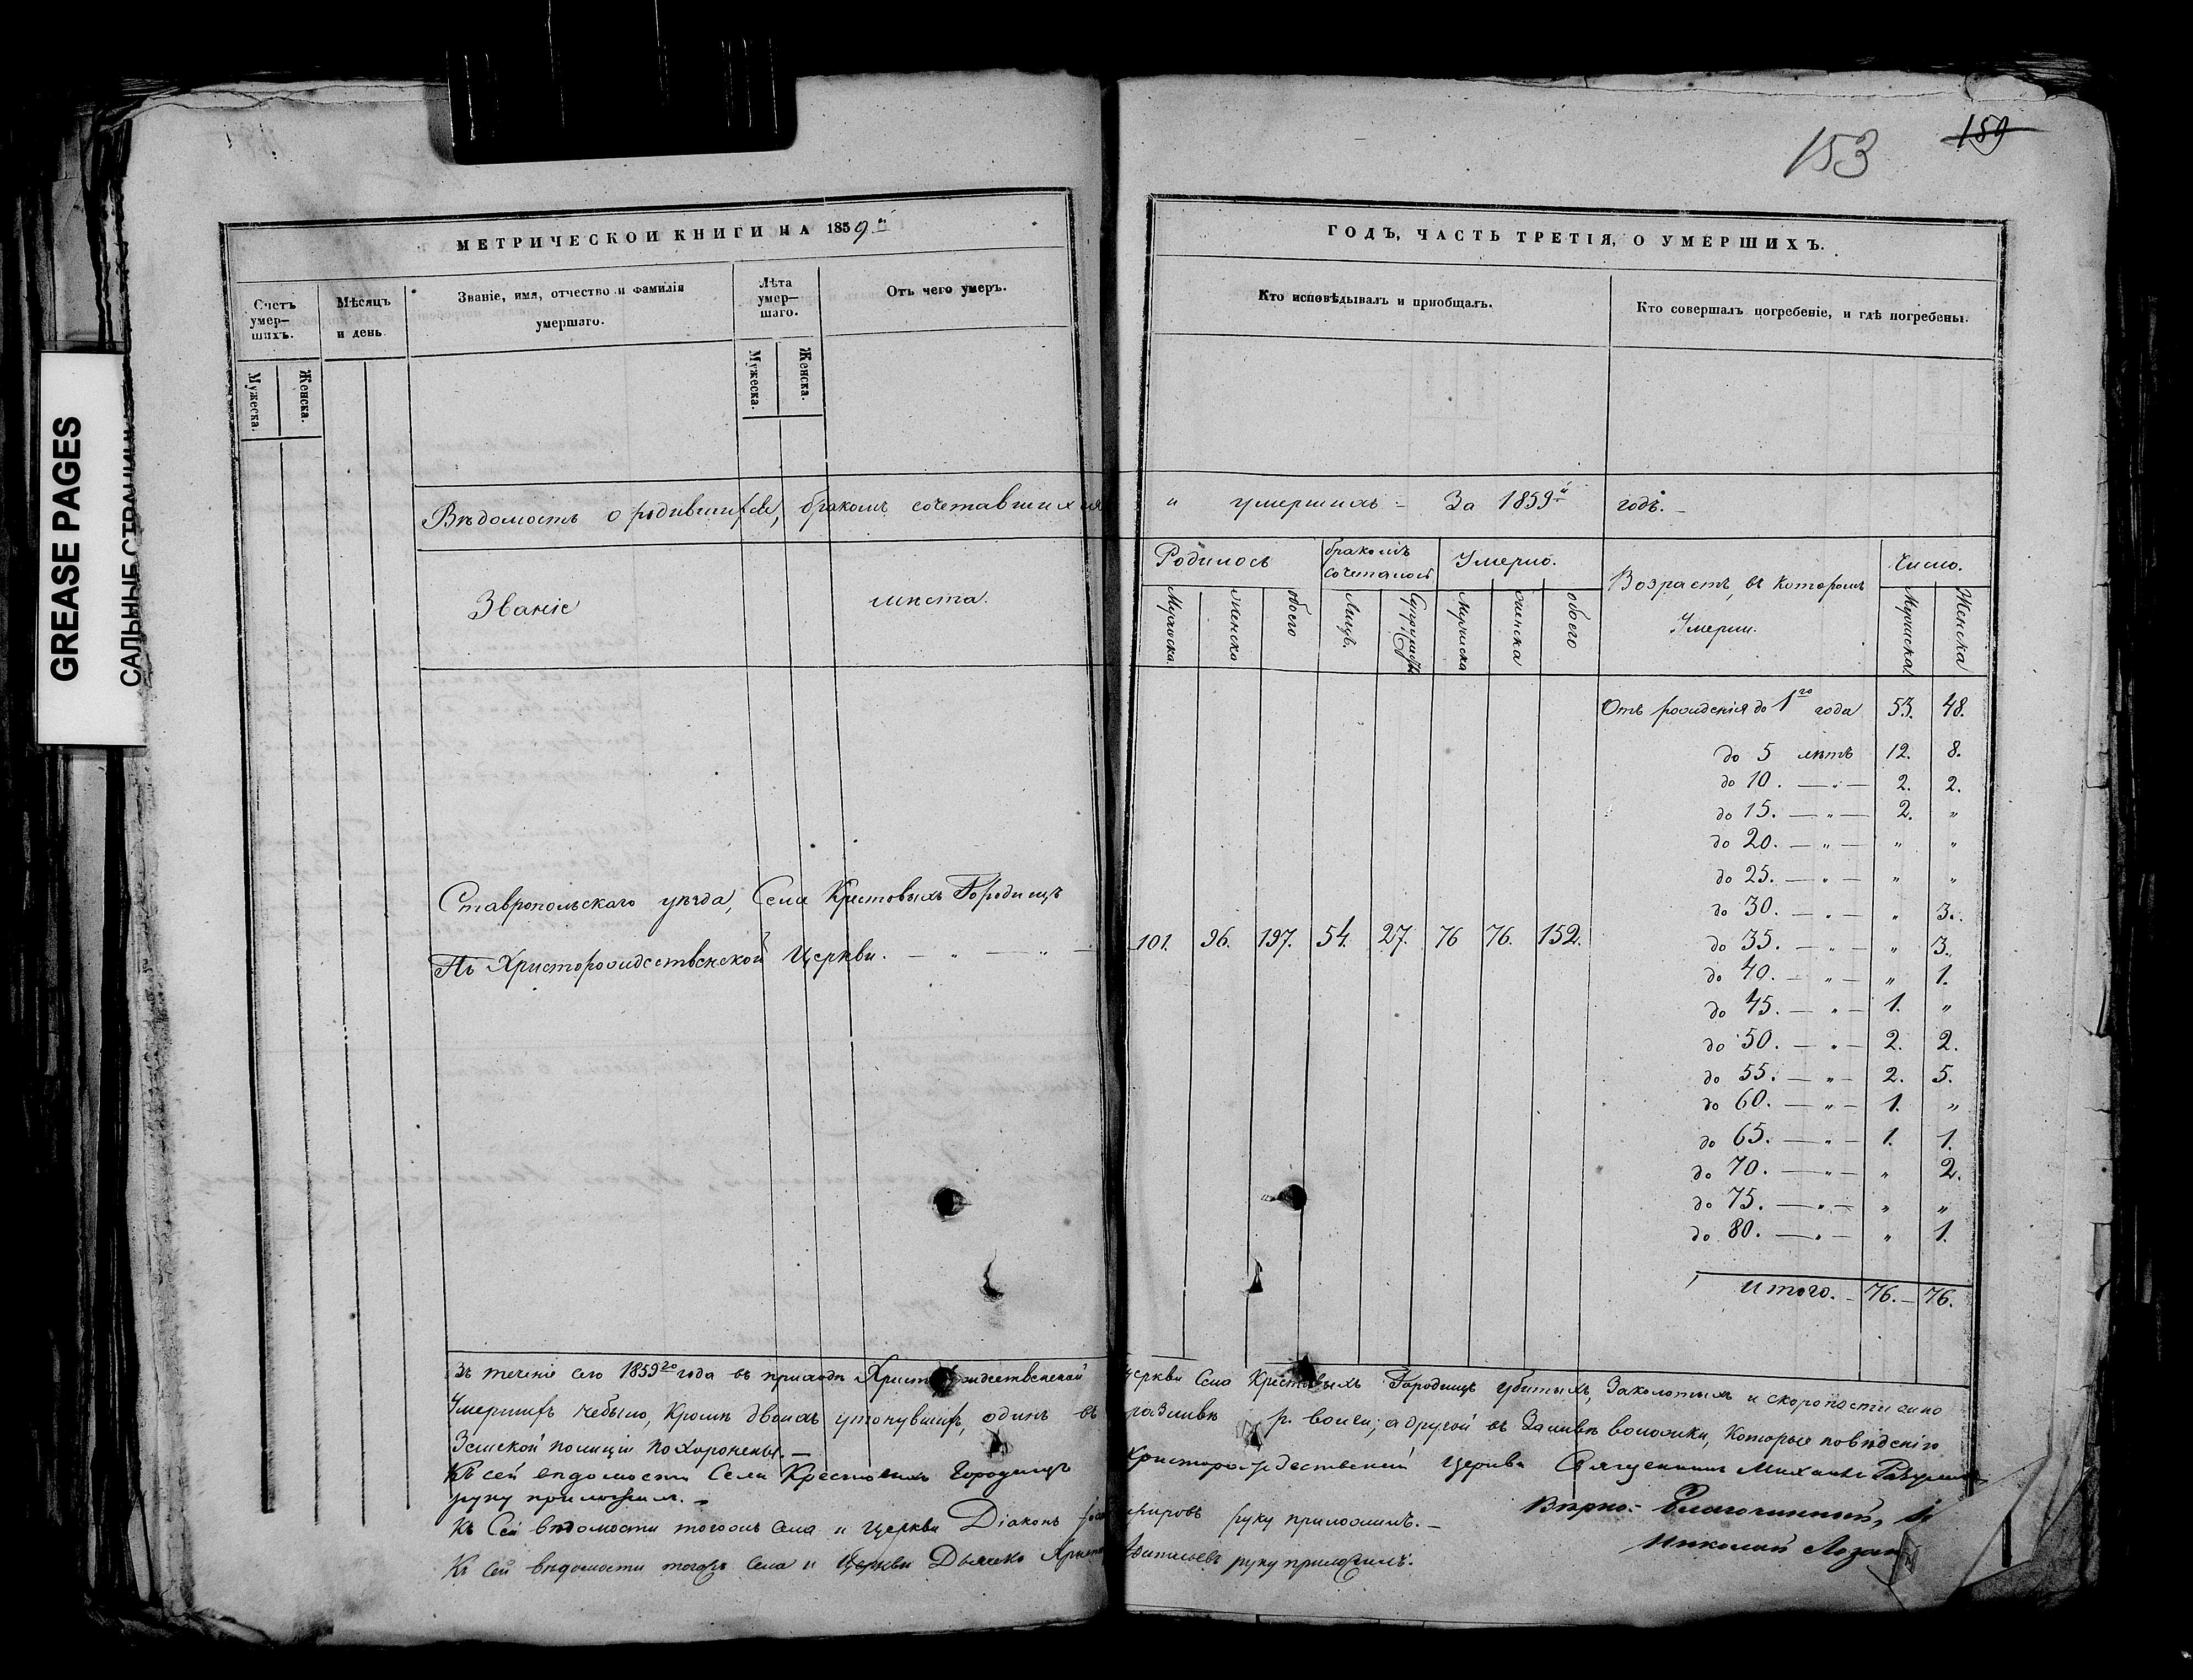 GREASE PAGES
САЛЬНЫЕ СТРАНИЦЫ
153 159
МЕТРИЧЕСКОЙ КНИГИ НА 1859й
ГОДЪ, ЧАСТЬ ТРЕТІЯ, О УМЕРШИХЪ.
Счетъ умер—шихъ.
Мужеска.
Женска.
Мѣсяцъ и день.
Званіе, имя, отчество и фамилія умершаго.
Лѣта умер—шаго.
Мужеска.
Женска.
Отъ чего умеръ.
Кто исповѣдывалъ и приобщалъ.
Кто совершалъ погребеніе, и гдѣ погребены.
Вѣдомость о родившихся, бракомъ сочетавшихся и умершихъ – За 1859й годъ. –
Званіе мѣста.
Родилось
Мужеска
Женска
обоего
бракомъ сочеталось
Лицъ.
Супружествъ
Умерло.
Мужеска
Женска
обоего
Возрастъ, въ которомъ Умерли.
Число.
Мужеска
Женска
Ставропольскаго уѣзда, Села Крестовыхъ Городищъ
Въ Христорождественской Церкви. — „ — „ —
101. 96. 197. 54. 27. 76 76. 152.
Отъ рожденія до 1го года 53. 48.
до 5 лѣтъ 12. 8.
до 10. — „ — 2. 2.
до 15. — „ — 2. „
до 20. — „ — „ „
до 25. — „ — „ „
до 30. — „ — „ 3.
до 35. — „ — „ 3.
до 40. — „ — „ 1.
до 45. — „ — 1. „
до 50. — „ — 2. 2.
до 55. — „ — 2. 5.
до 60. — „ — 1. „
до 65. — „ — 1. 1.
до 70. — „ — „ 2.
до 75. — „ — „ „
до 80. — „ — „ 1.
Итого. – 76. – 76.
Въ теченіе сего 1859го года въ приходѣ Христорождественской Церкви Села Крестовыхъ Городищъ убитыхъ, Заколотыхъ и скоропостижно
Умершихъ небыло, Кромѣ двоихъ утонувшихъ, одинъ въ разливѣ р. волги; а другой въ Заливѣ воложки, Которые
Земской полиціи похоронены. –
Къ сей вѣдомости Села Крестовыхъ Городищъ Христорождественской Церкви Священникъ Михаилъ
руку приложилъ. –
Къ Сей вѣдомости тогожъ Села и Церкви Діаконъ руку приложилъ. –
Къ сей вѣдомости тогожъ Села и Церкви Дьячекъ руку приложилъ.
Вѣрно: – Благочинный,
Николай